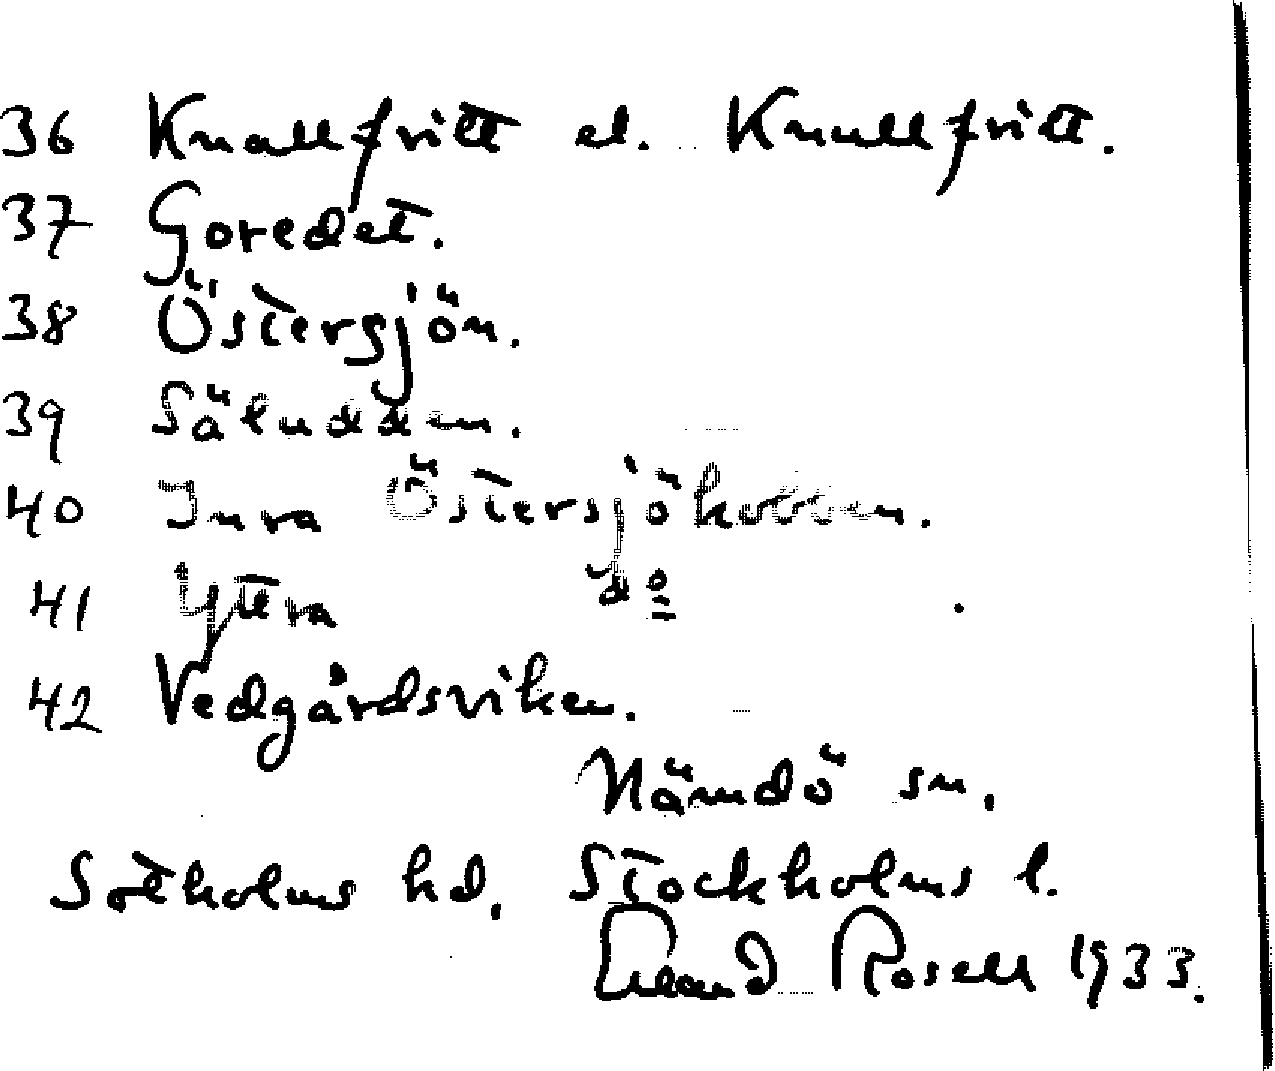 36 Knallfritt el. Knullfritt.
37 Goredet.
38 Östersjön.
39 Säludden.
40 Inra Östersjökobben.
41 Yttra do .
42 Vedgårdsviken.
Nämdö sn.
Sotholms hd. Stockholms l.
Erland Rosell 1933.